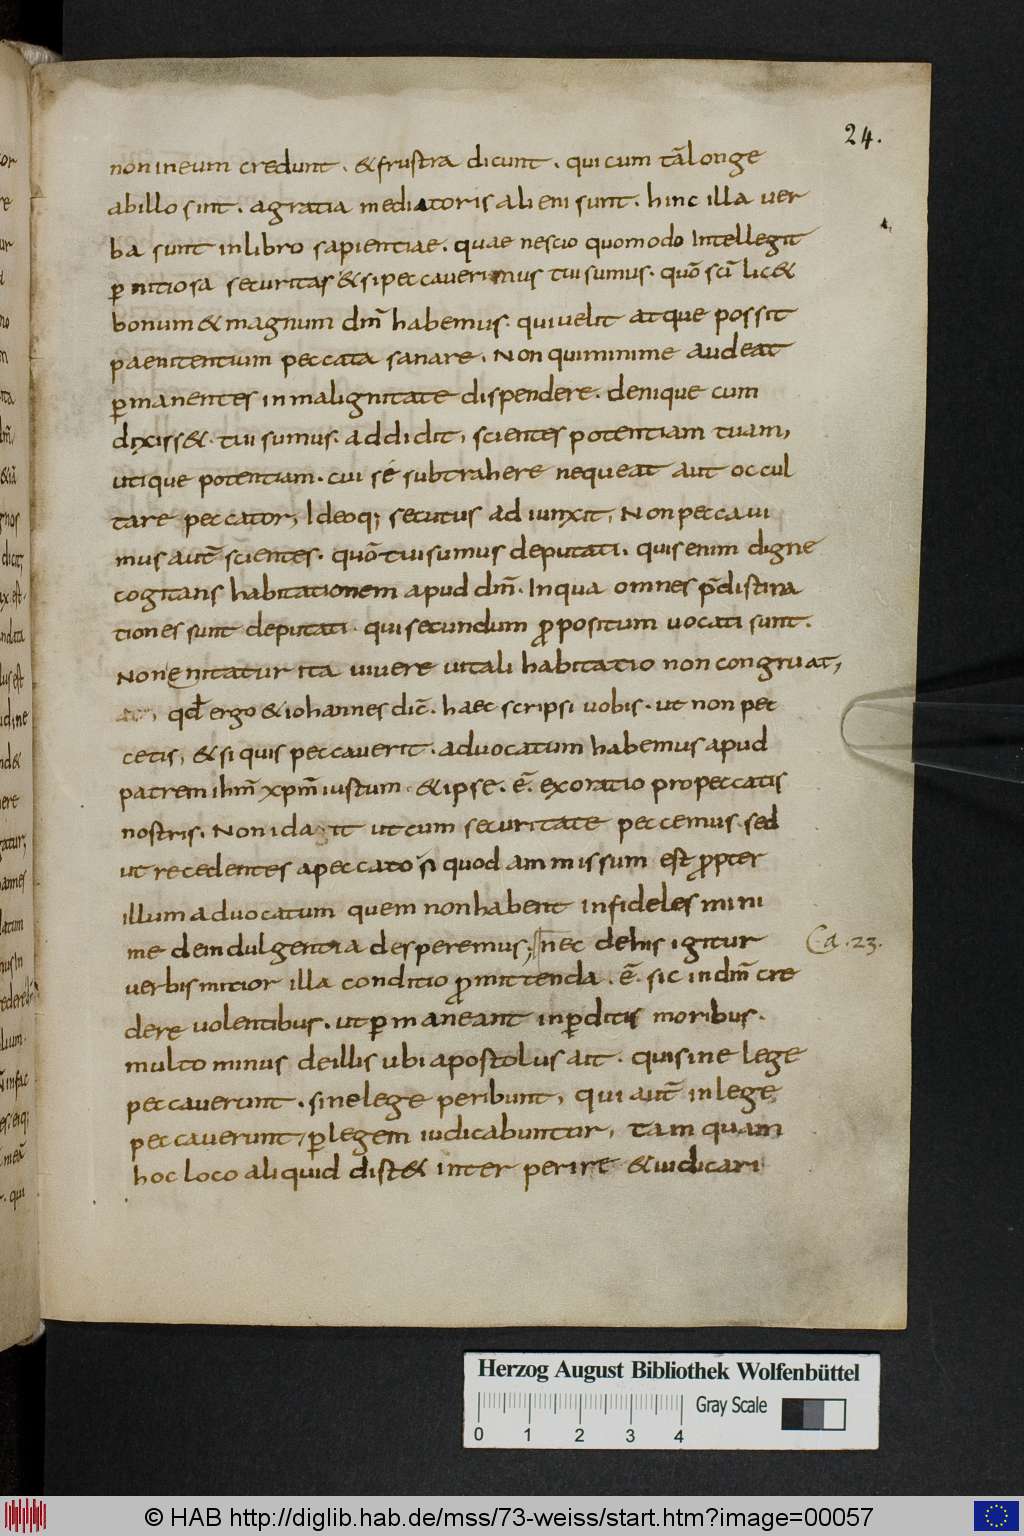 24.
non in eum credunt . & frustra dicunt . qui cum tā longe
ab illo sint . a gratia mediatoris alieni sunt . hinc illa ver
ba sunt in libro sapientiae . quae nescio quomodo Intellegit
p̲nitiosa securitas & si peccaverimus tui sumus . quō scī lic&
bonum & magnum dm̄ habemus . qui velit atque possit
paenitentium peccata sanare . Non qui minime audeat
p̲manentes in malignitate dispendere . denique cum
dixiss& . tui sumus . addidit , scientes potentiam tuam ,
utique potentiam . cui se subtrahere nequeat aut occul
tare peccator , Ideoq; secutus adiunxit , Non peccavi
mus autē scientes . quō tui sumus deputati . quis enim digne
cogitans habitationem apud dm̄ . In qua omnes p̄distina
tiones sunt deputati . qui secundum p̱positum vocati sunt .
Non enitatur ita vivere ut tali habitatio non congruat ,
qd̄ ergo & iohannes dic̄ . haec scripsi vobis . ut non pec
cetis , & si quis peccaverit . advocatum habemus apud
patrem ihm̄ xpm̄ iustum . & ipse . ē . exoratio pro peccatis
nostris . Non id a it ut cum securitate peccemus . sed
ut recedentes a peccato si quod ammissum est p̱pter
illum advocatum quem non habent infideles mini
me de indulgentia desperemus ; nec de his igitur
Ca . 23 .
verbis mitior illa conditio p̱mittenda . ē . sic in dm̄ cre
dere volentibus . ut p̲maneant in p̲ditis moribus .
multo minus de illis ubi apostolus ait . qui sine lege
peccaverunt . sine lege peribunt , qui autē in lege
peccaverunt , p̲ legem iudicabuntur , tamquam
hoc loco aliquid dist& inter perire & iudicari
Herzog August Bibliothek Wolfenbüttel
Gray Scale
0 1 2 3 4
© HAB http://diglib.hab.de/mss/73-weiss/start.htm?image=00057